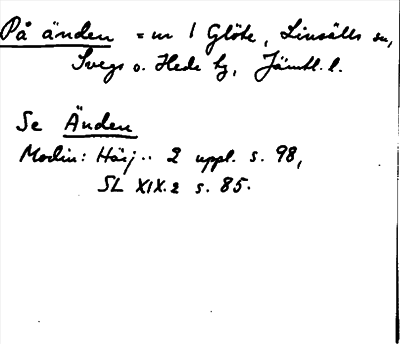 På änden = nr 1 Glöte, Linsälls sn,
Svegs o. Hede tg, Jämtl. l.
Se Änden
Modin: Härj.. 2 uppl. s. 98,
SL XIX.2 s. 85.